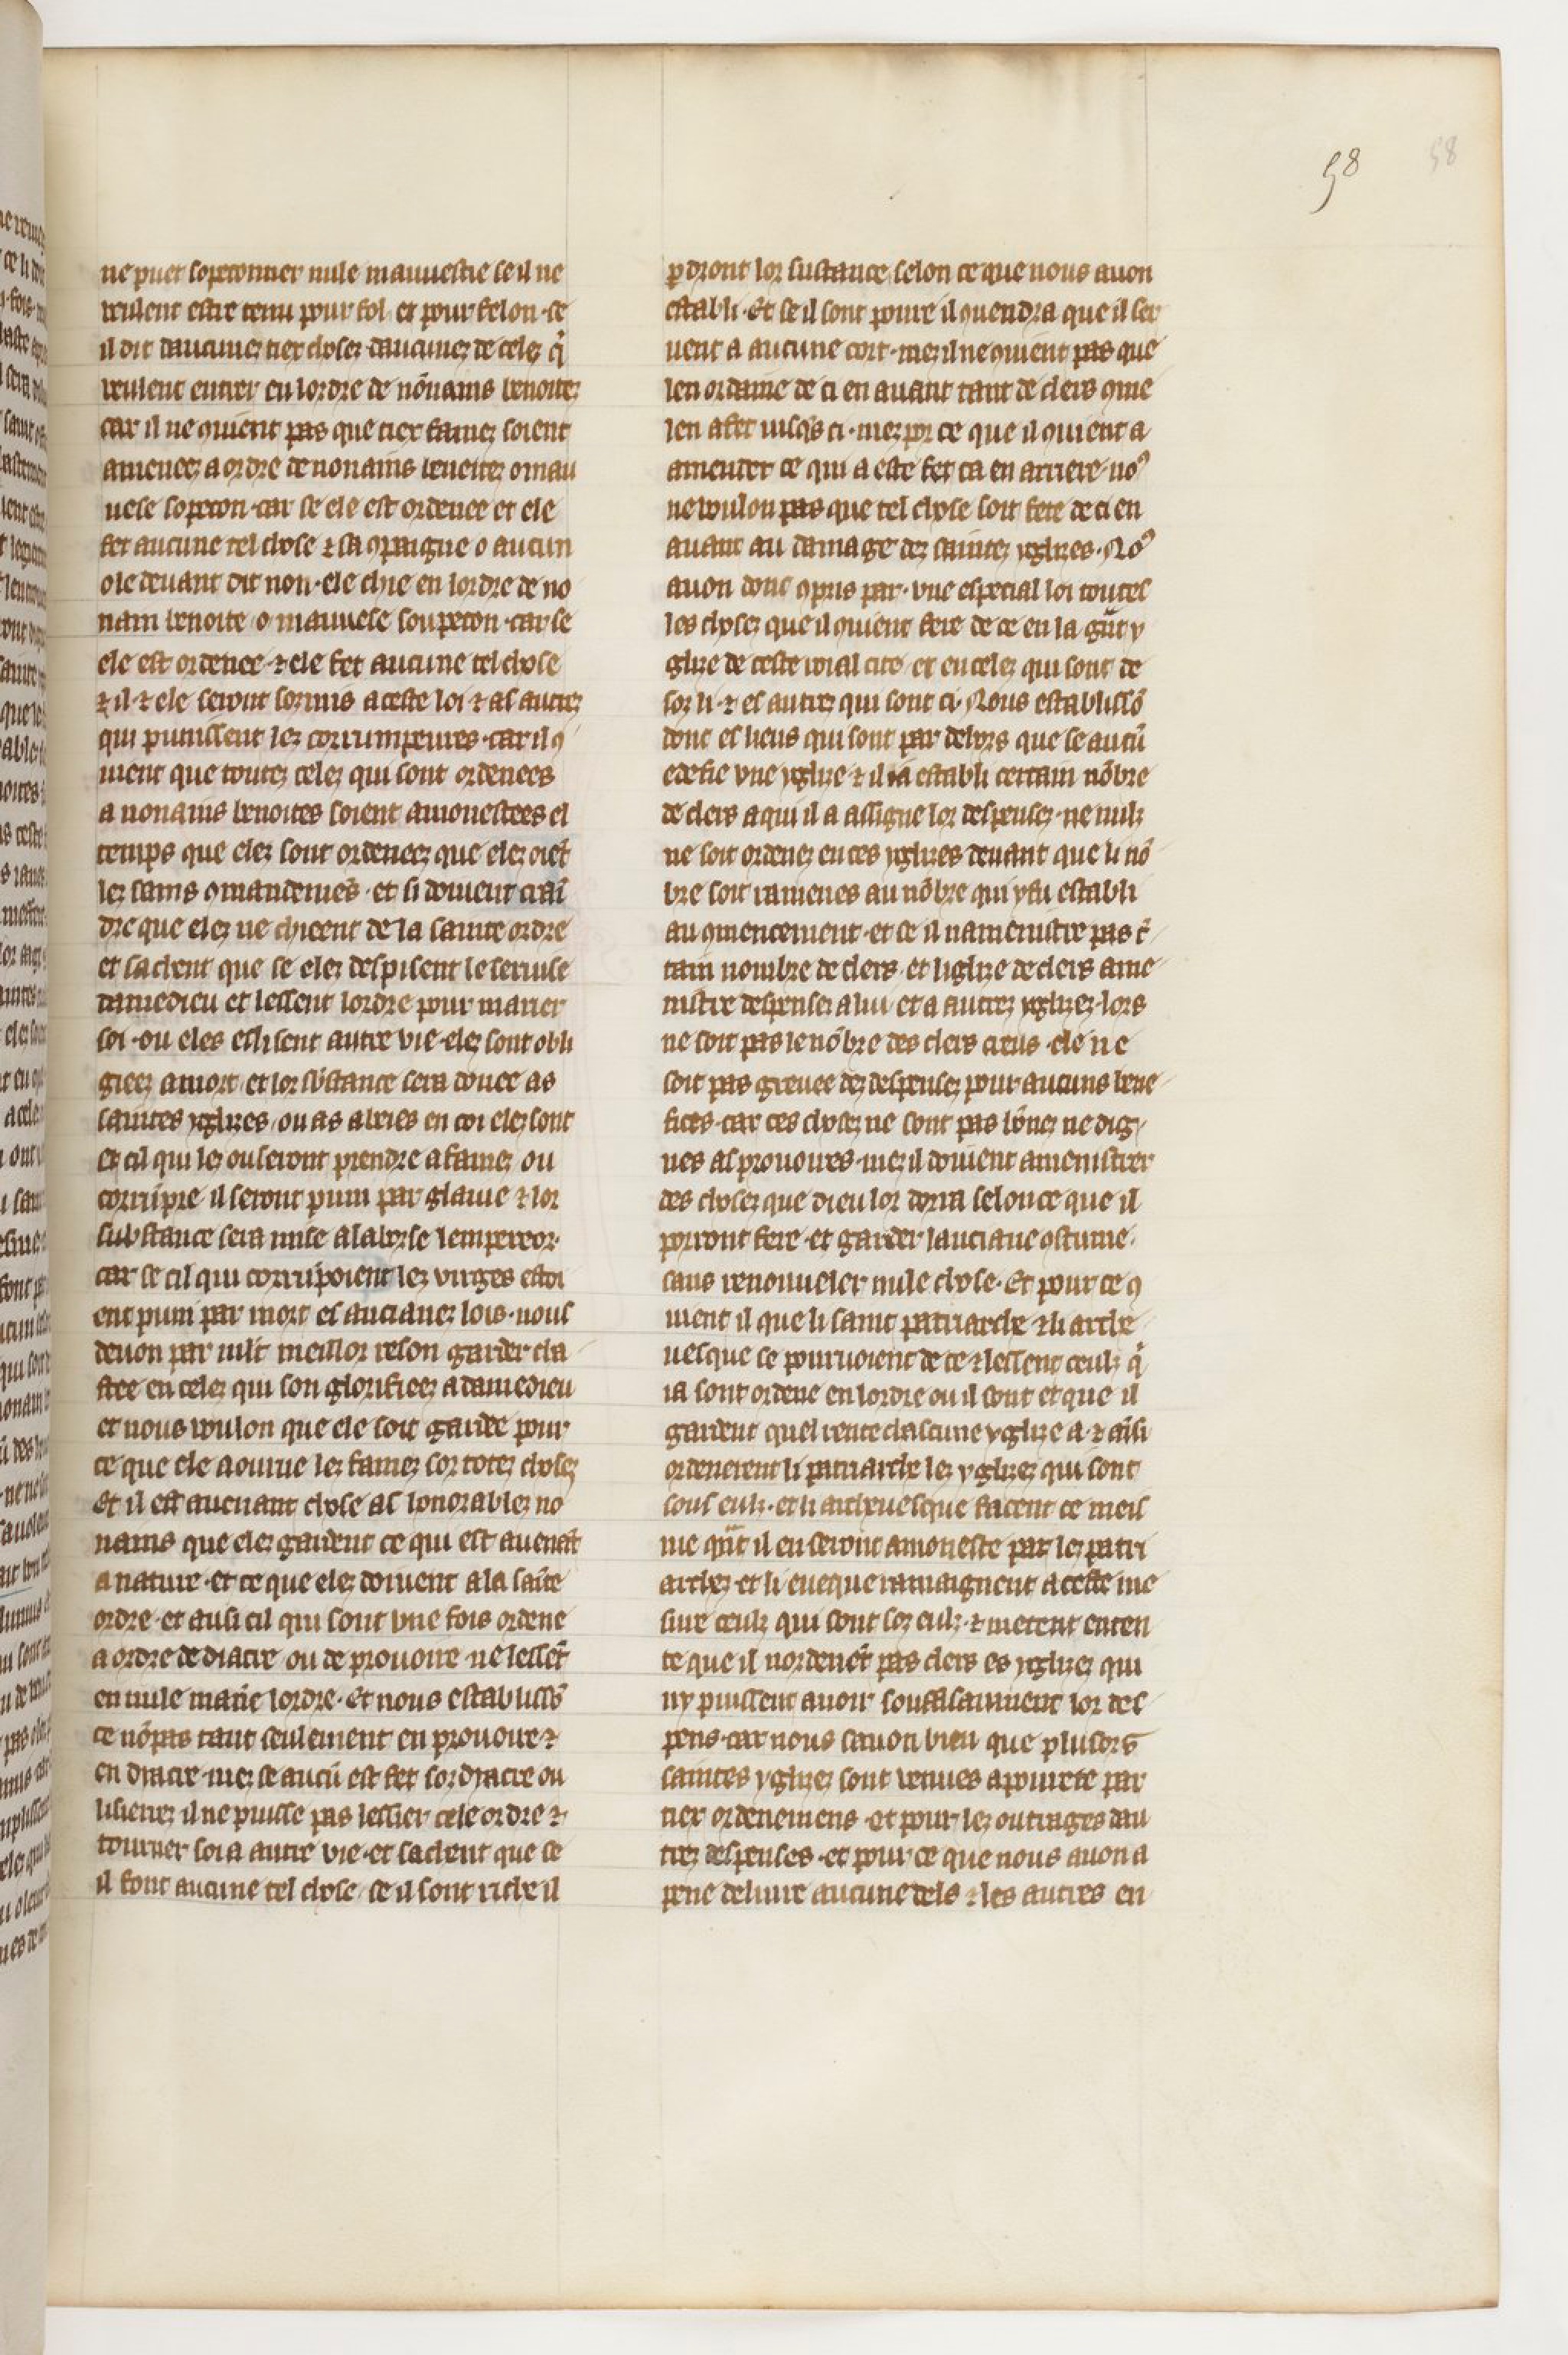 58
58
ne puet sopeconner nule mauuestie se il ne
veulent estre tenu pour fol et pour felon · se
il dit daucunez tiex choses daucunez de celez q̾
veulent entrer en lordre de nōnains benoitez
car il ne ꝯuient pas que tiex famez soient
amenees a ordre de nonains beneites o mau
uese sopecon · car se ele est ordenee et ele
fet aucune tel chose ⁊ sa ꝯpaigne o aucun
ole deuant dit non · ele chie en lordre de no
nain benoite o mauuese soupecon · car se
ele est ordenee · ⁊ ele fet aucune tel chose
⁊ il · ⁊ ele seront sozmis a ceste loi ⁊ as autrez
qui punissent lez corrumpeures · car il ꝯ
uient que toutez celez qui sont ordenees
a nonains benoites soient amonestees el
temps que elez sont ordeneez que elez oiēt
lez sains ꝯmandemēs · et si doiuent crai
dre que elez ne chieent de la sainte ordre
et sachent que se elez despisent le seruise
damedieu et lessent lordre pour marier
soi · ou eles eslisent autre vie · elez sont obli
gieez a mort · et lor sustance sera donee as
saintes yglises / ou as abeies en coi elez sont
et cil qui lez ouseront prendre a famez ou
corrūpre il seront puni par glaiue ⁊ lor
substance sera mise a la borse lempereor ·
car se cil qui corrūpoient lez virges estoi
ent puni par mort es ancianez lois · nous
deuon par mlt meillor reson garder cha
stee en celez qui son glorifieez a damedieu
et nous voulon que ele soit gardee pour
ce que ele aourue lez famez sor totez choses
Et il est auenant chose as honorablez no
nains que elez gardent ce qui est auenāt
a nature · et ce que elez doiuent a la saīte
ordre · et ausi cil qui sont vne fois ordene
a ordre de diacre ou de prouoire ne lessēt
en nule manie lordre · Et nous establissō
ce nōpas tant seulement en prouoire ⁊
en diacre · mez se aucū est fet sordiacre ou
lisierrez il ne puisse pas lessier cele ordre ⁊
tourner soi a autre vie · et sachent que se
il font aucune tel chose / se il sont riche il
ꝑdront lor sustance selon ce que nous auon
establi · Et se il sont poure il ꝯuendra que il ser
uent a aucune cort · mez il ne ꝯuient pas que
len ordaine de ci en auant tant de clers ꝯme
len a fet iusqs ci · mez por ce que il ꝯuient a
amender ce qui a este fet ca en arriere · noꝰ
ne voulon pas que tel chose soit fete de ci en
auant au damage dez saintez yglises · Noꝰ
auon donc ꝯpris par · vne especial loi toutes
les choses que il ꝯuient fere de ce en la grāt y
glise de ceste roial cite / et en celez qui sont de
soz li · ⁊ es autrez qui sont ci · Nous establissō
donc es lieus qui sont par dehors que se aucū
edefie vne yglise ⁊ il i a establi certain nōbre
de clers a qui il a assigne lor despensez · ne nulz
ne soit ordenez en ces yglises deuant que li nō
bre soit ramenes au nōbre qui y fu establi
au ꝯmencement · et se il namenistre pas c̄
tain nombre de clers · et liglise de clers ame
nistre despenses a lui · et a autrez yglisez · lors
ne soit pas le nōbre des clers creus · ele ne
soit pas greuee dez despensez pour aucuns bene
fices · car ces chosez ne sont pas bōnez ne dig
nes as prouoires · mez il doiuent amenistrer
des chosez que dieu lor dorra selon ce que il
porront fere · et garder lanciane ꝯstume ·
sans renouueler nule chose · Et pour ce ꝯ
uient il que li saint patriarche ⁊ li arche
uesque se pouruoient de ce ⁊ lessent ceulz q̾
ia sont ordene en lordre ou il sont et que il
gardent quel rente chascune yglise a · ⁊ ainsi
ordenerent li patriarche lez yglisez qui sont
sous eulz · et li archeuesque facent ce meis
me qn̄t il en seront amoneste par lez patri
archez · et li eueque ramaignent a ceste me
sure ceulz qui sont soz eulz · ⁊ metent enten
te que il nordenēt pas clers es yglisez qui
ny puissent auoir souffisaument lor des
pens · car nous sauon bien que plusors
saintes yglisez sont venues a pourete par
tiex ordenemens · et pour lez outrages dau
trez despenses · et pour ce que nous auon a
pene deliure aucune dels ⁊ les autres en